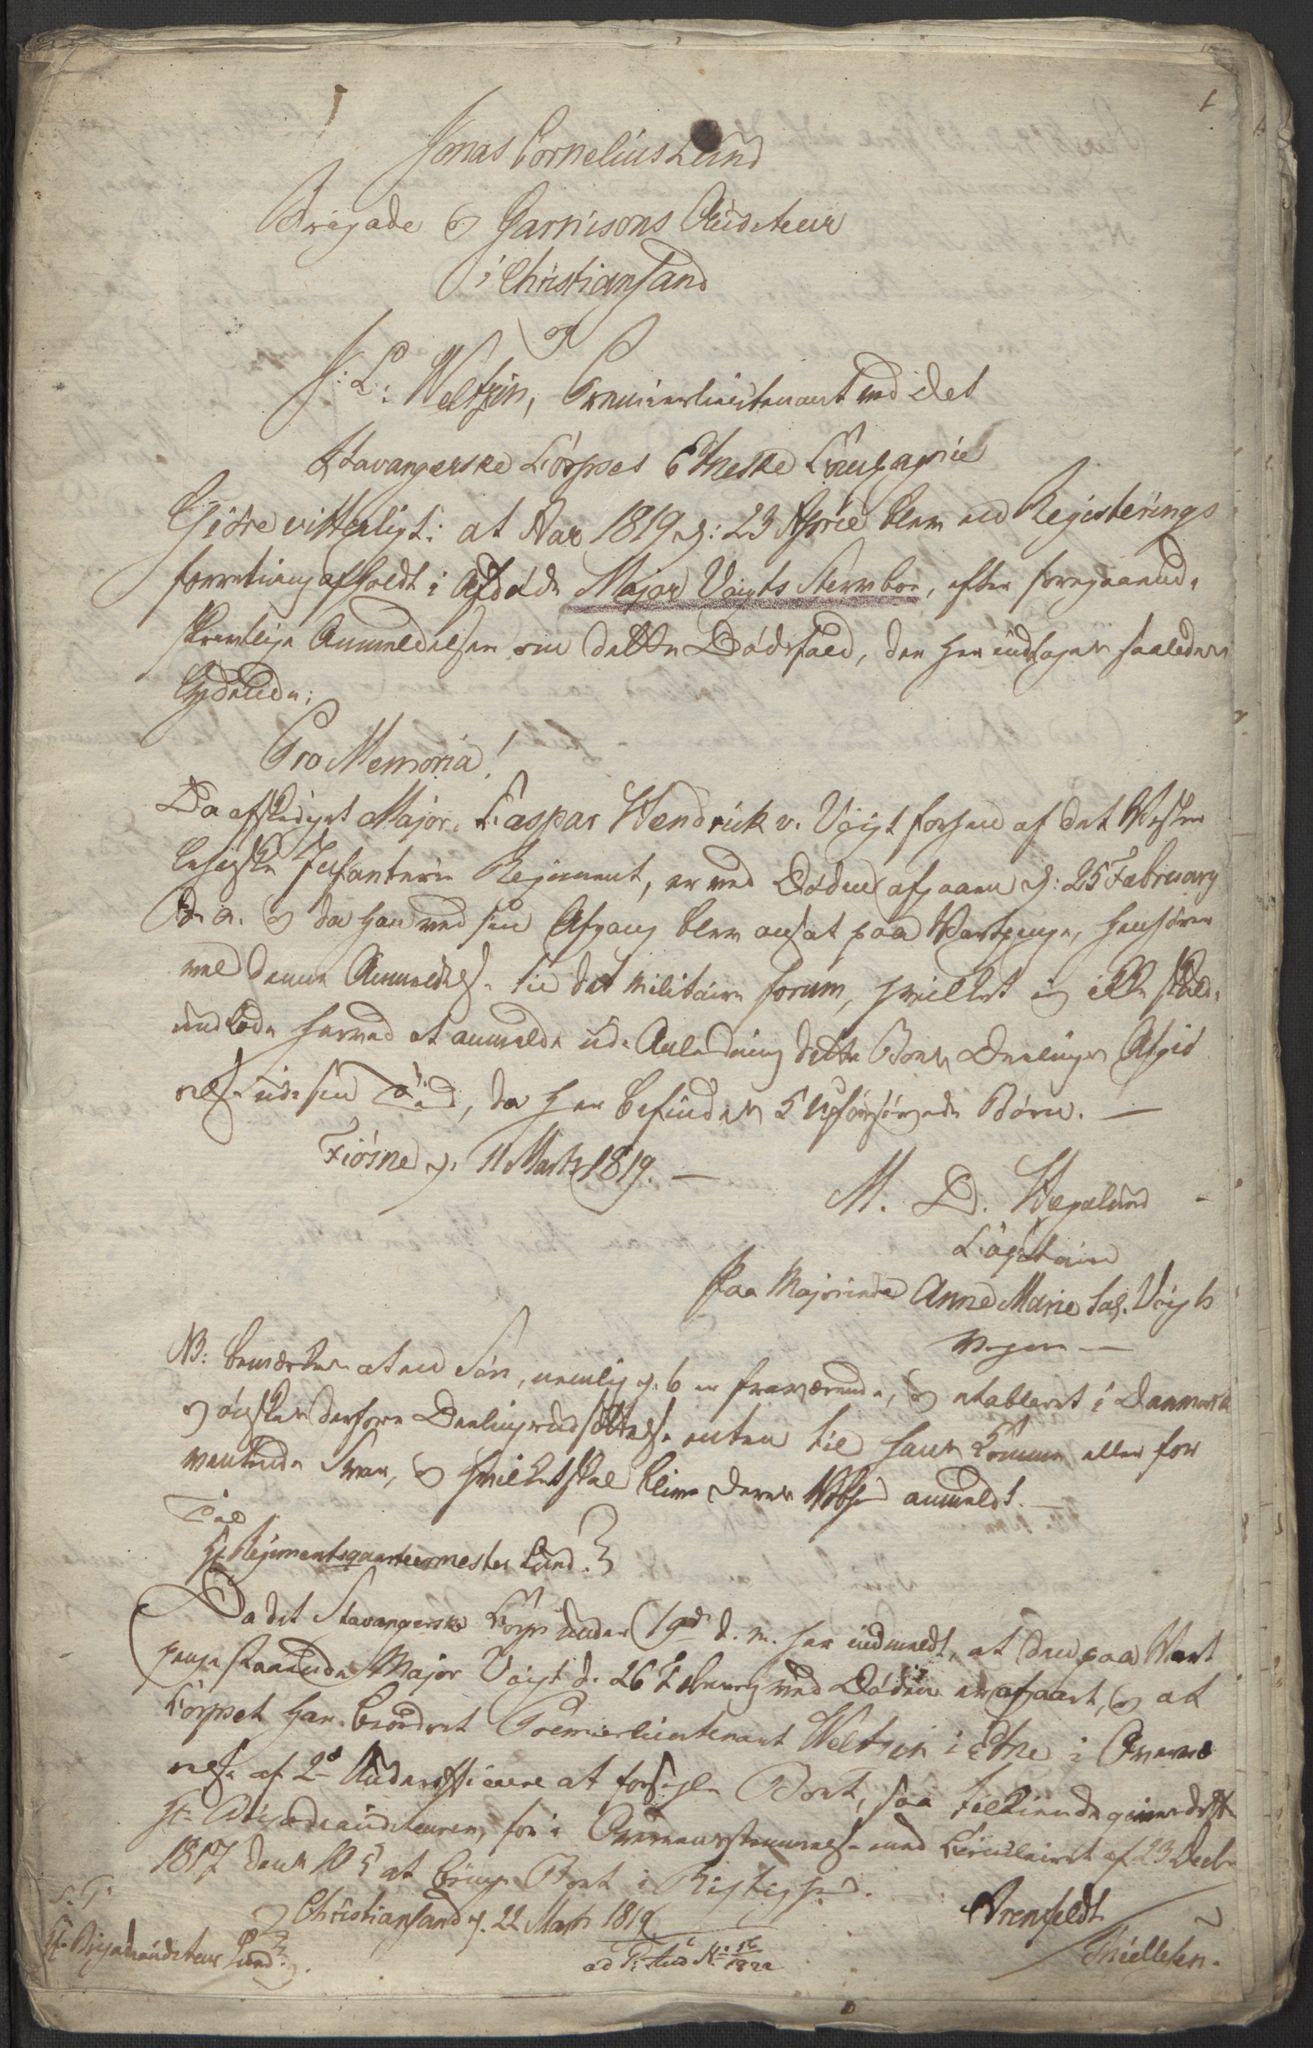 1
Jonas Cornelius Lund
Brigade og Garnisons Auditeur
i Christiansand
og
J: L: Weltzin, Premierlieutenant ved det
Stavangerske Corpses Etneske Compagnie
Giøre vitterligt: at Aar 1819 d: 23 April blev en Registerings
forretning afholdt i Afdøde Major Voigts Sterrboe, efter foregaaende
skrivtlige Anmeldelser om dette Dødsfald, der her indtages saaledes
lydende:
Pro Memoria!
Da afskediget Major Caspar Hendrick v. Voigt forhen af det Vester
lehnske Infanterie Regiment, er ved Døden afgaaen d: 25 February
d. a. og da han ved sin Afgang blev ansat paa Vartpenge, henhører
vel denne Anmeldelse til det militaire forum, hvilket jeg ikke skulde
undlade herved at anmelde i Anledning dette Boes Deelings Afgiø
relse i sin Tid, da her befindes 5 uforsørgede Børn. —
Tiøsne d. 11 Marts 1819. —
M. D. Wegelund
Capitain
Paa Majorinde Anne Marie Sal. Voigts
Vegne —
NB: bemærkes at en Søn, nemlig d. 6 er fraværende, og etableret i Danmark
og ønskes derfore Deelings udsættelse enten til hans Komme eller for
ventende Svar, og hvilket skal blive deres anmeldt. —
Til
Hr. Regimentsquarteermester Lund.
Da det Stavangerske Corps under 19de d. m. har indmeldt, at den paa Vart
penge staaende Major Voigt d. 26 February ved Døden er afgaaet, og at
Corpset har beordret Premierlieutenant Weltzin i Etne i Overvæ
relse af 2de Underofficerer at forsegle Boet, saa tilkiendegives dette
Hr. Brigadeauditeuren, for i Overeensstemmelse med Circulairet af 23 Decbr
1817 dens 10 § at bringe Boet i Rigtighed.
Christiansand d. 22 Marts 1819
Arenfeldt
S. T.
Hr. Brigadeauditeur Lund.
ad No 56/1822